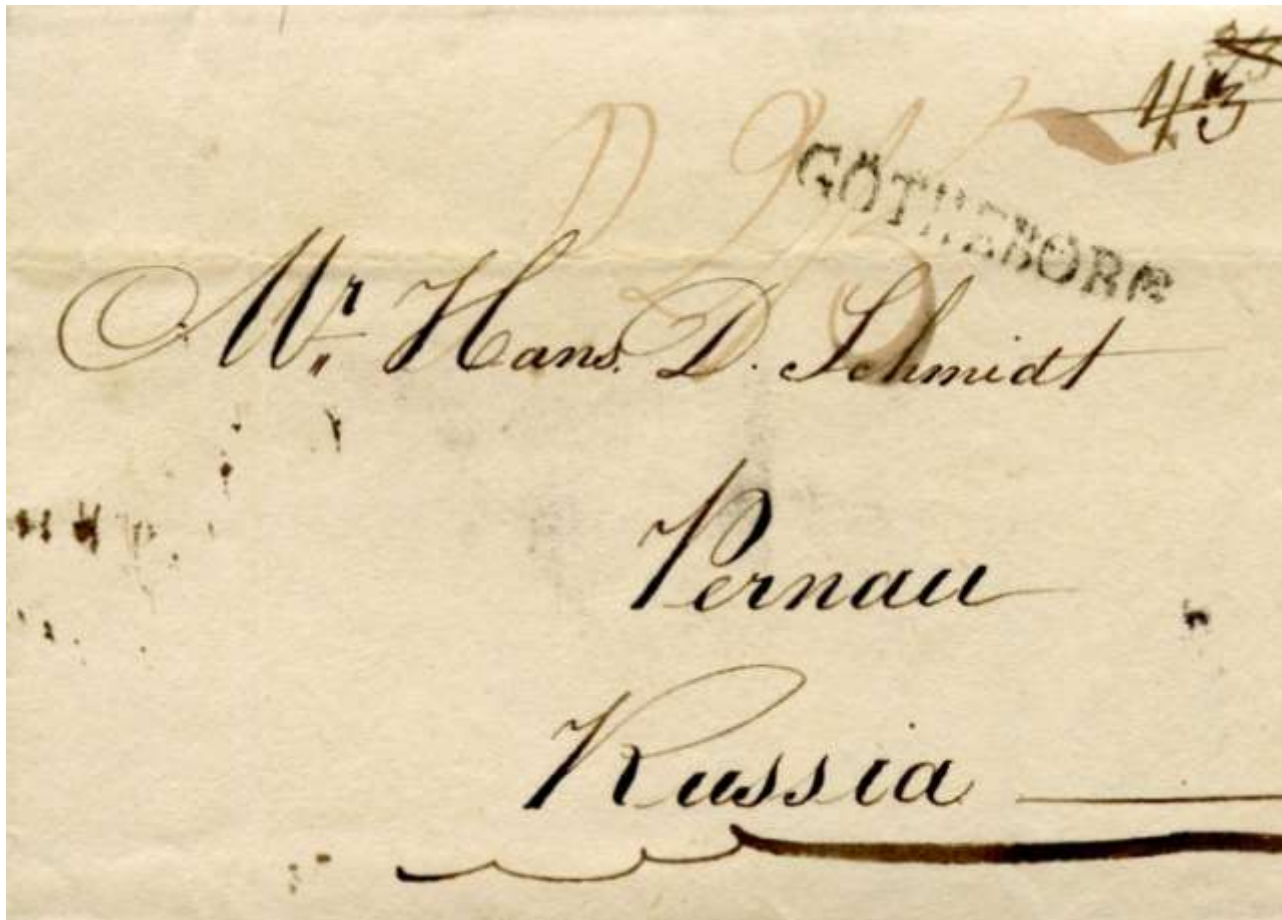 43
GÖTHEBORG
Mr. Hans. D. Schmidt
Pernau
Russia